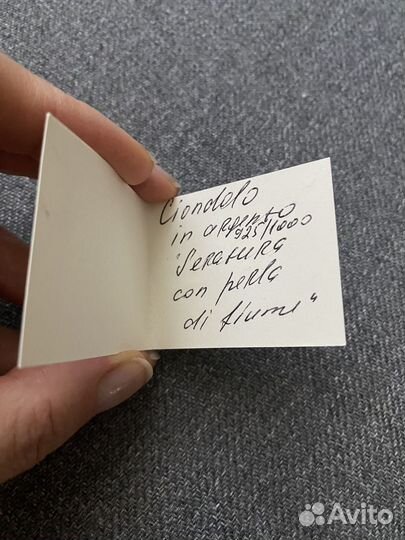 Ciondolo
in argento
925/1000
"Seratura
con perla
di fiume"
Avito